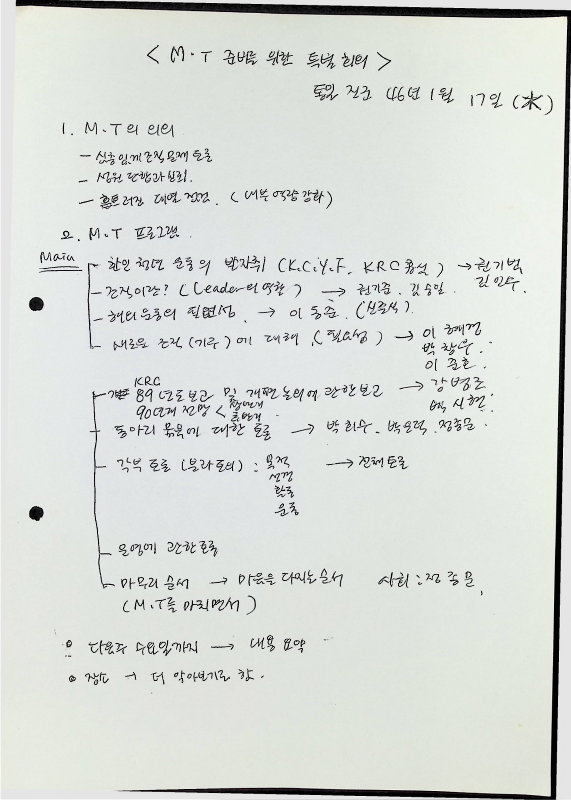 < M·T 준비를 위한 특별 회의 >
통일 전조 46년 1월 17일 (水)
1. M·T의 의의
- 심층있게 조직문제 토론
- 성원 단합과 신뢰.
- 흩트러진 대열 정점. (내부 역량 강화)
2. M·T 프로그램.
Main
- 한인 청년 운동의 발자취 (K.C.Y.F. KRC 중심) → 권기범
김인수.
- 조직이란? (Leader의 역할) → 권기준. 김승일.
- 해외운동의 필연성. → 이동준. (신준식).
- 새로운 조직(기구)에 대해. (필요성) → 이혜경
박창우.
이준호.
KRC
89년도보고 및 개편논의에 관한보고 → 강병조
90년계 전망 < 상반기 하반기
백시현.
- 동아리 묶음에 대한 토론 → 박희수. 박오덕. 정종문.
- 각부 토론 (분과토의) : 목적 → 전체토론
선정
활동
운동
- 운영에 관한토론
- 마무리 순서 → 마음을 다지는순서 사회 : 정종문.
(M·T를 마치면서)
◦ 다음주 수요일까지 → 내용 요약
◦ 장소 → 더 알아보기로 함.